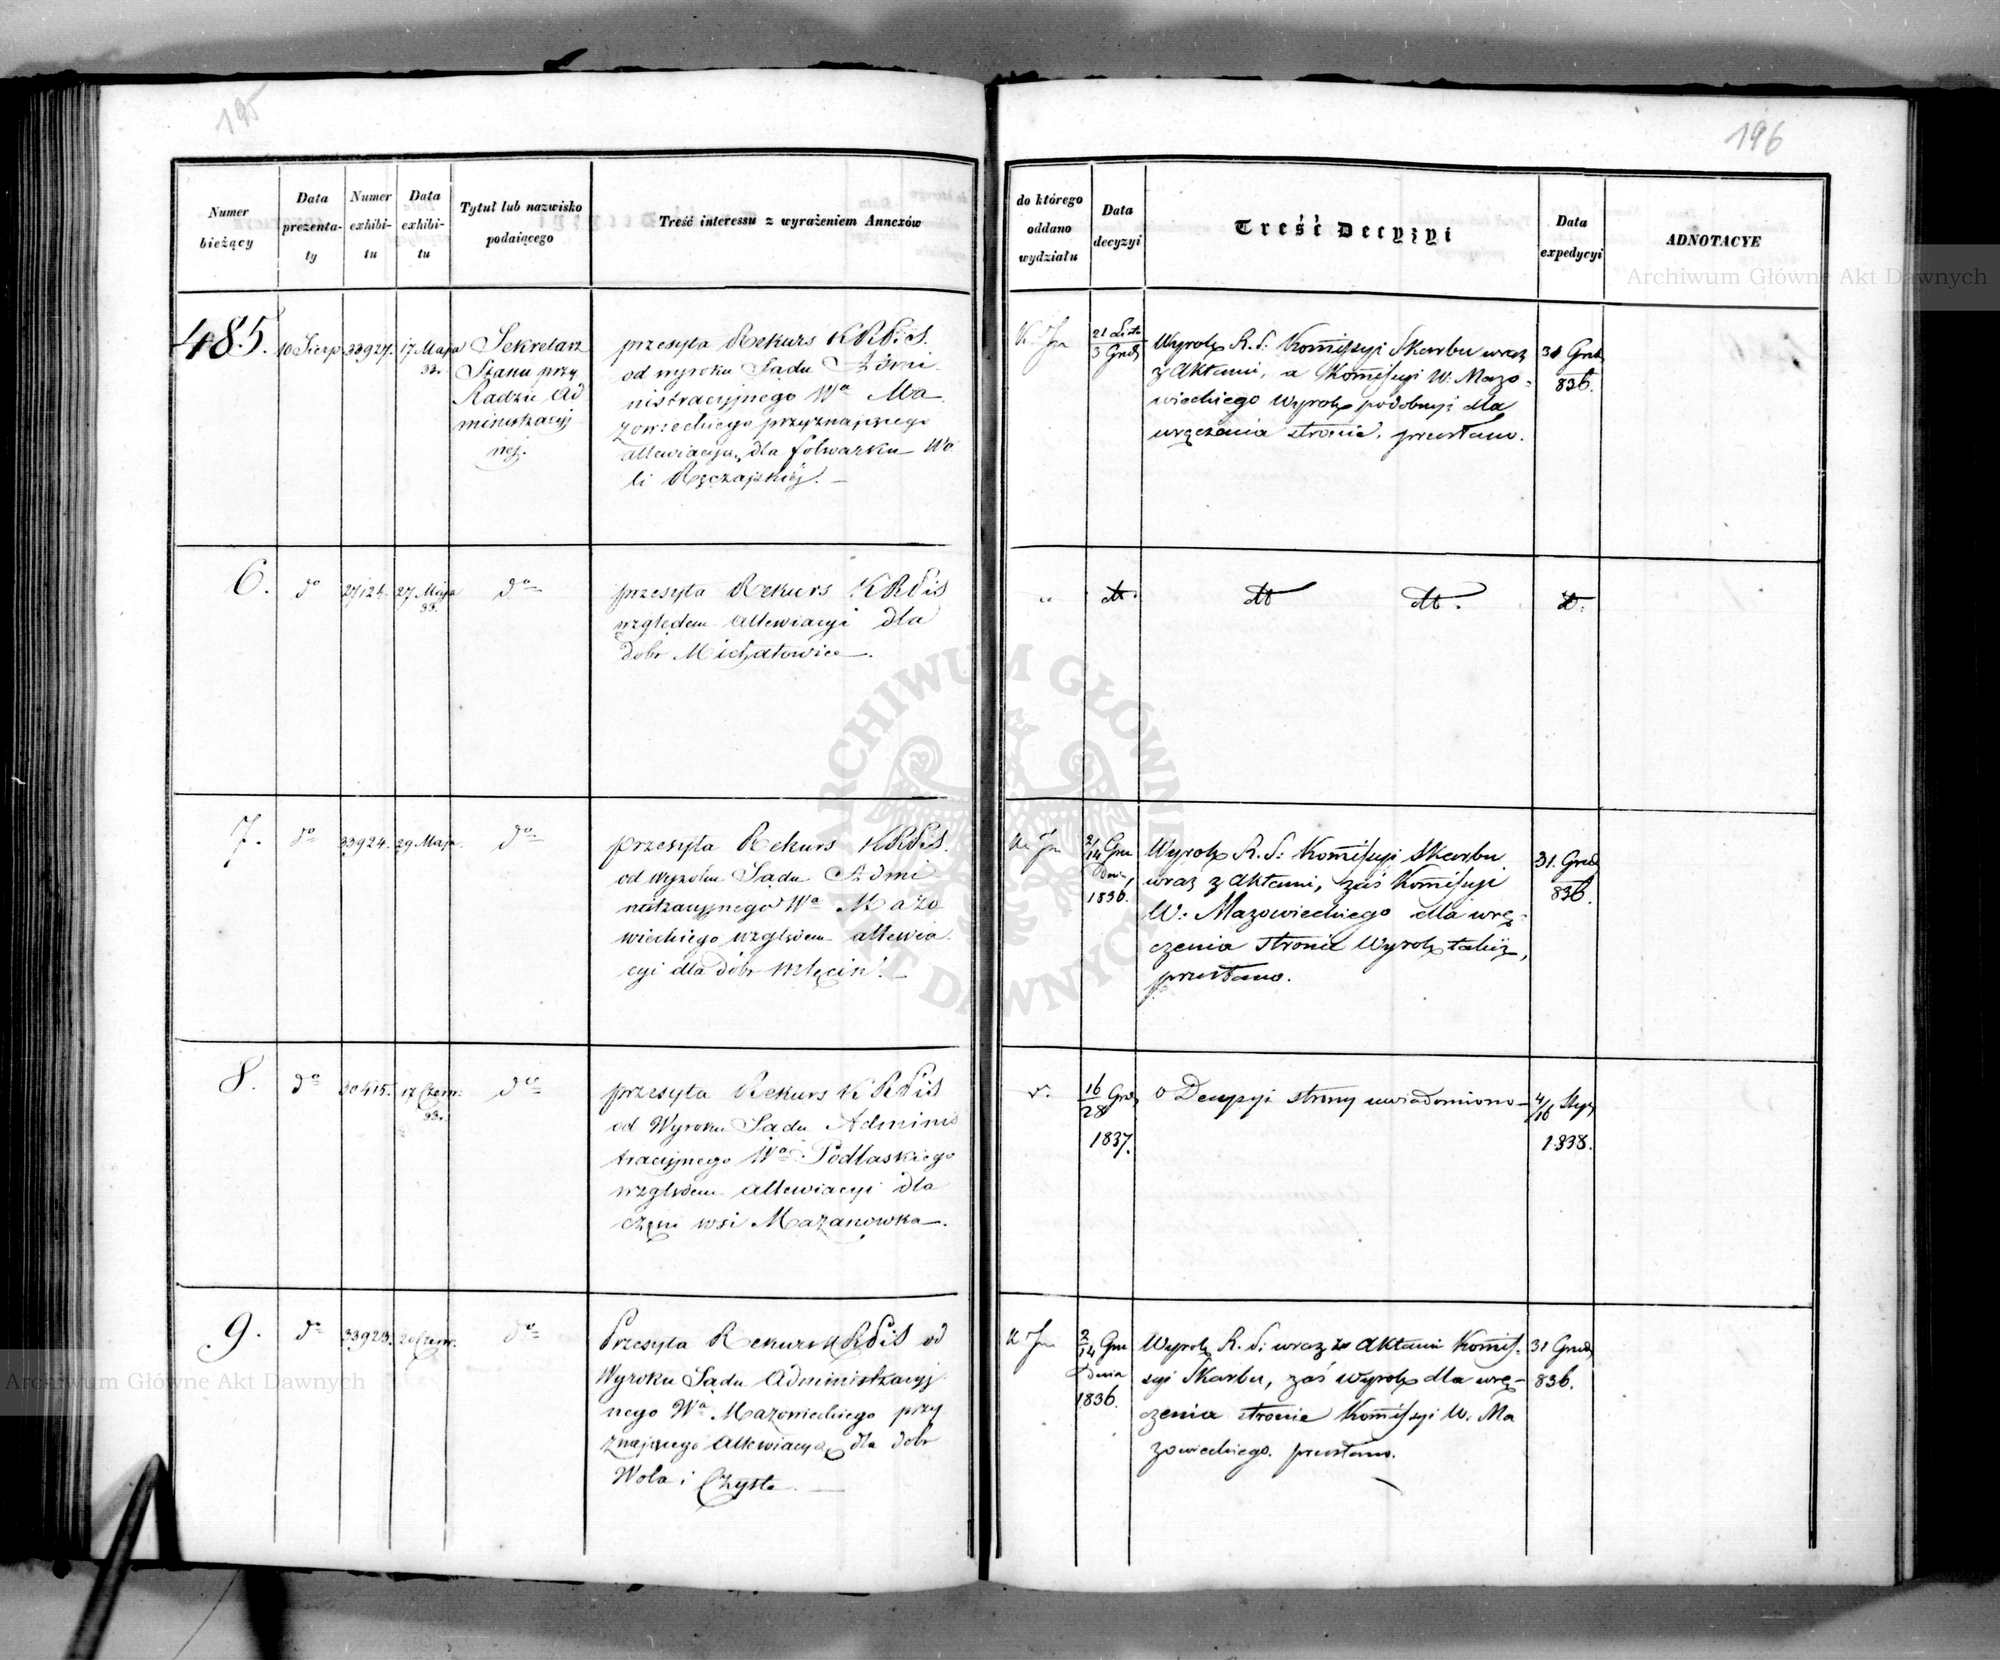 195
Numer
bieżący
Data
prezenta-
ty
Numer
exhibi-
tu
Data
exhibi-
tu
Tytuł lub nazwisko
podaiącego
Treść interessu z wyrażeniem Annexów
485.
10 Sierp
33927.
17 Maja
33.
Sekretarz
Stanu przy
Radzie Ad
ministracyj
nej.
przesyła Rekurs KRPiS.
od wyroku Sądu Admi
nistracyjnego Wa Ma
zowieckiego przyznającego
allewiacyą dla folwarku Wo
li Ręczajskiéj. —
6.
do
27124.
27 Maja
33.
do
przesyła Rekurs KRPiS
względem allewiacyi dla
dobr Michałowice.
7.
do
33924.
29 Maja.
do
przesyła Rekurs KRPiS.
od wyroku Sądu Admi
nistracyjnego Wa Mazo
wieckiego względem allewia
cyi dla dóbr Mlęcin. —
8.
do
30415.
17 Czerw.
33.
do
przesyła Rekurs KRPiS
od Wyroku Sądu Adminis
tracyjnego Wa Podlaskiego
względem allewiacyi dla
części wsi Mazanowka.
9.
do
33923.
20 Czerw.
do
Przesyła Rekurs KRPiS od
Wyroku Sądu Administracyj
nego Wa Mazowieckiego przy
znającego allewiacyą dla dobr
Wola i Czyste. —
196
do którego
oddano
wydziału
Data
decyzyi
Treść Decyzyi
Data
expedycyi
ADNOTACYE
21 List.
3 Grud.
Wyrok R. S. Komissyi Skarbu wraz
z Aktami, a Komissyi W. Mazo-
wieckiego Wyrok podobnyż dla
wręczenia stronie, przesłano.
31 Grud.
836.
"
dto.
dto dto.
dto.
2/14 Gru
dnia
1836.
Wyrok R. S. Komissyi Skarbu
wraz z Aktami, zaś Komissyi
W. Mazowieckiego dla wrę-
czenia stronie Wyrok takiż,
przesłano.
31. Grud
836.
16/28 Grud.
1837.
o Decyzyi strony uwiadomiono —
4/16 Stycz
1838.
2/14 Gru
dnia
1836.
Wyrok R. S. wraz ze Aktami Komis-
syi Skarbu, zaś wyrok dla wrę-
czenia stronie Komissyi W. Ma
zowieckiego. przesłano.
31 Grud
836.
Archiwum Główne Akt Dawnych
ARCHIWUM GŁÓWNE
AKT DAWNYCH
Archiwum Główne Akt Dawnych